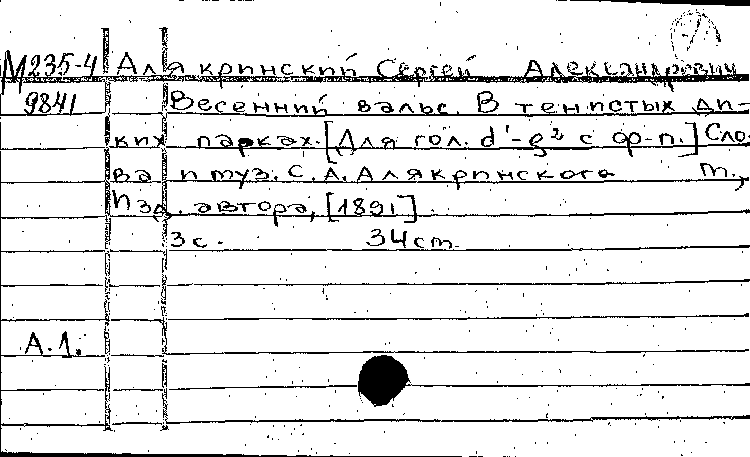 М235-4 Алякринский Сергей Александрович
9841 Весенний вальс. В тенистых ди-
ких парках. [Для гол. d¹-g² с ф-п.] Сло-
ва и муз. С. А. Алякринского М.,
Изд. автора, [1891].
3 с. 34 см.
А.1.